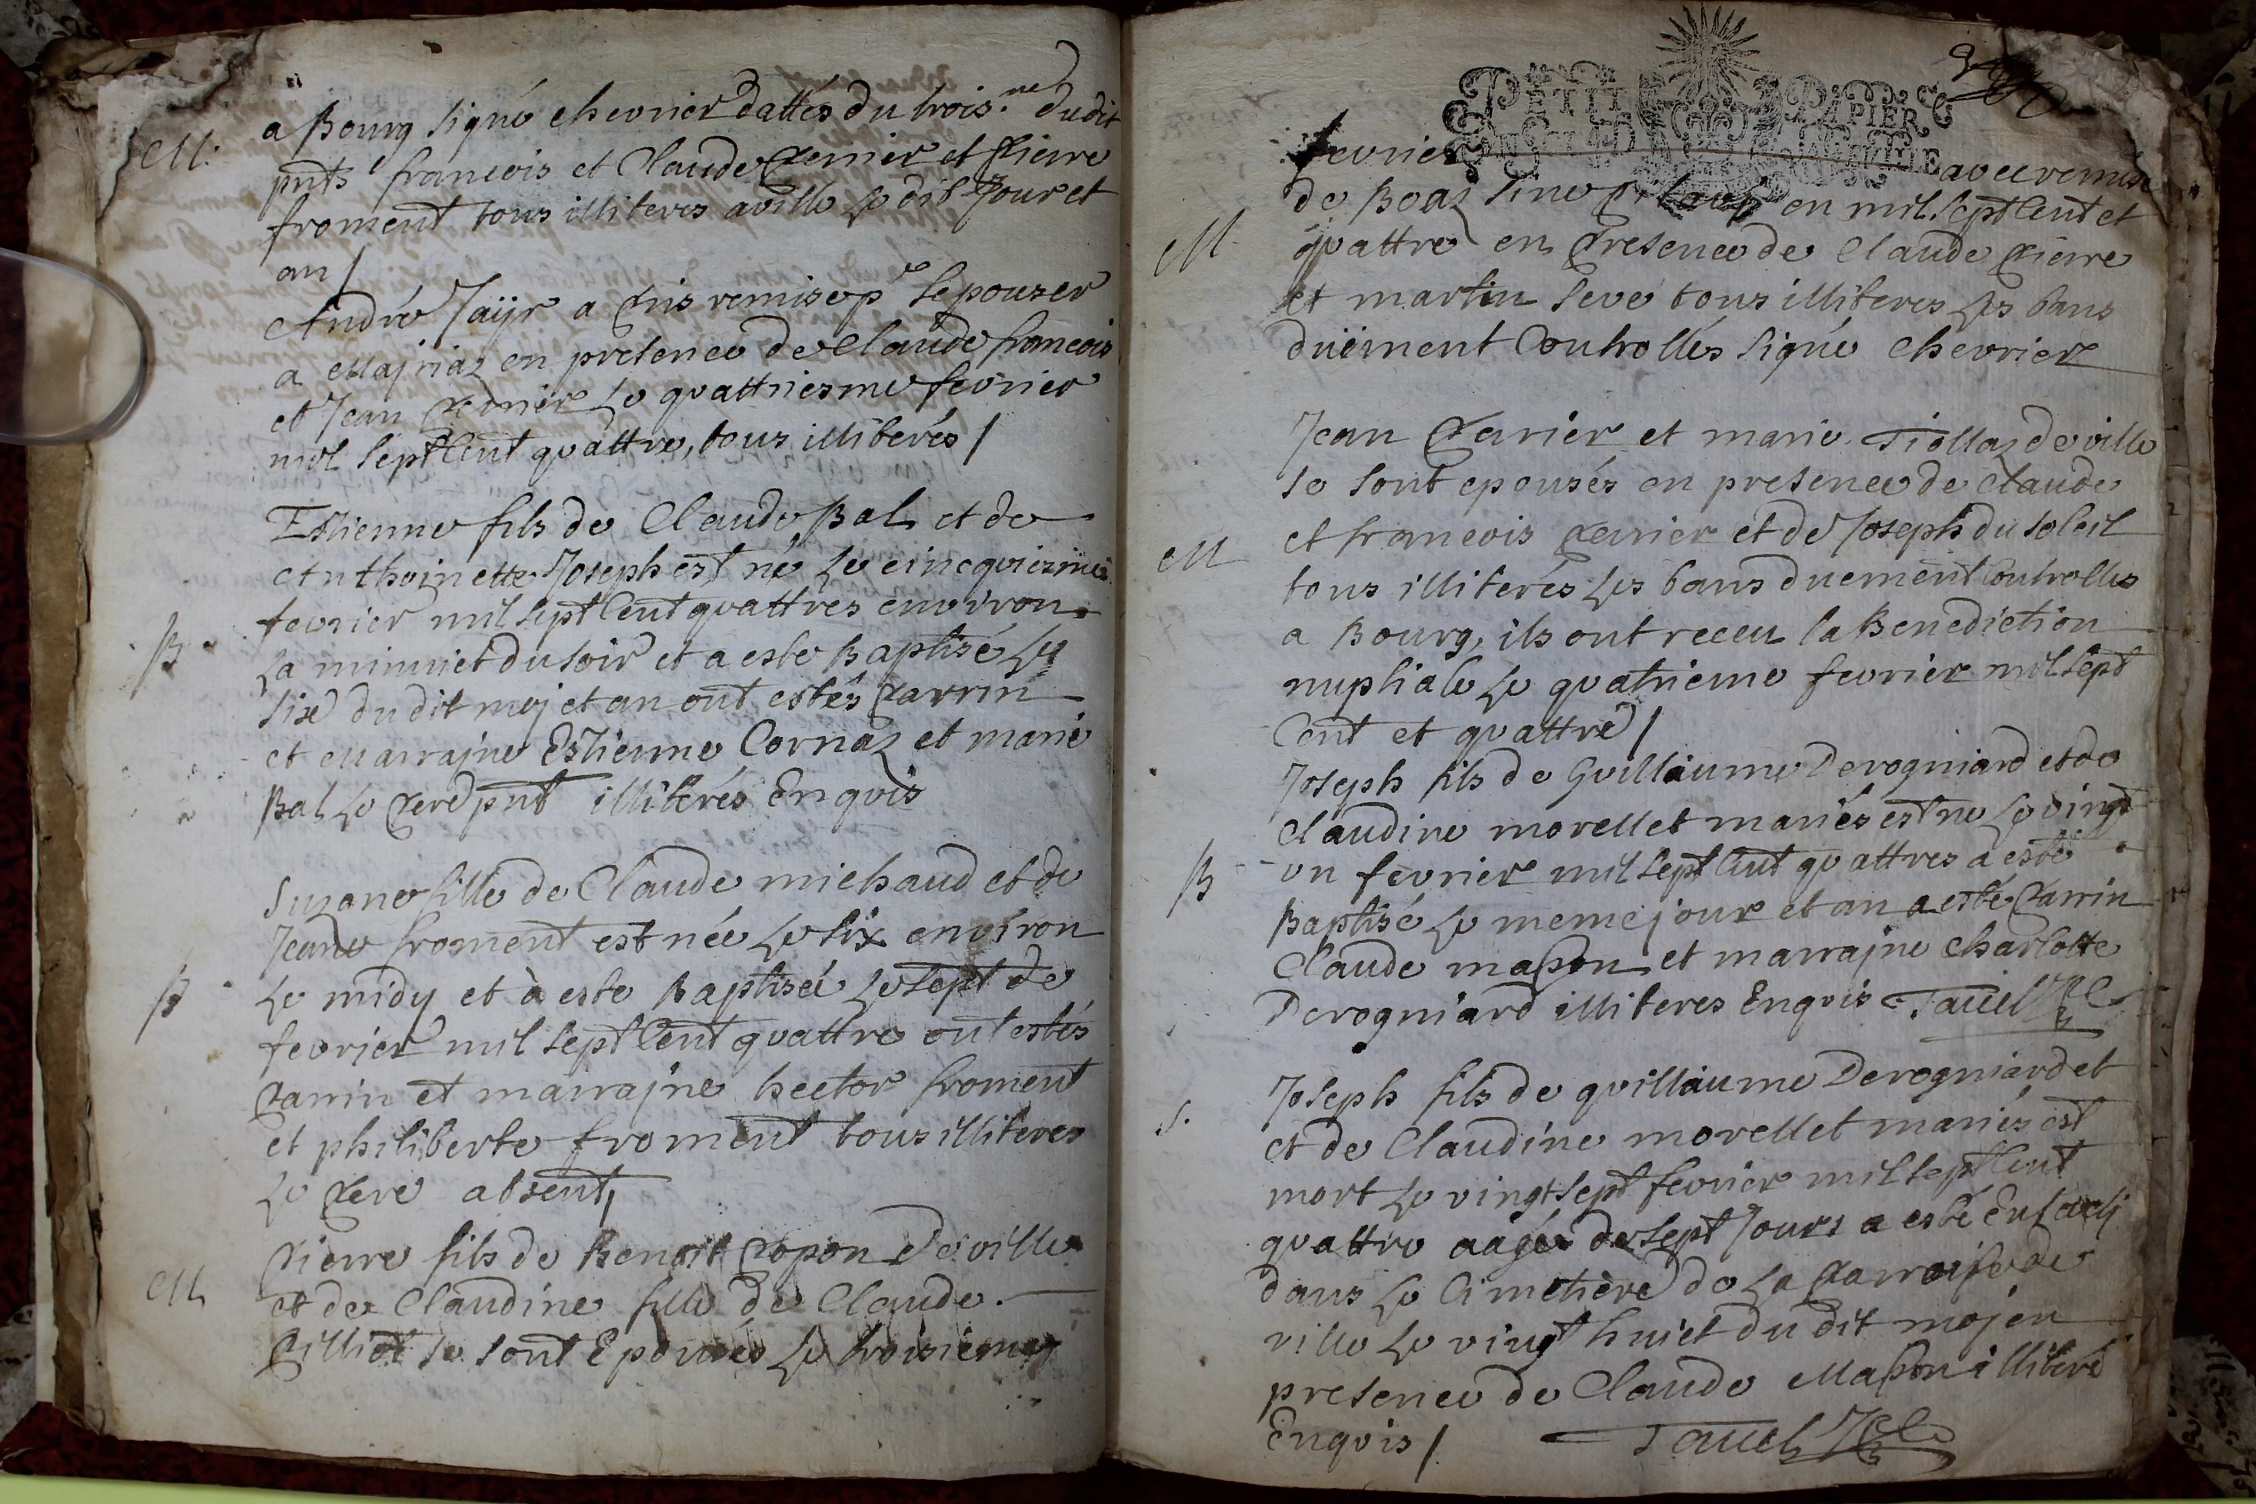 a Bourg signé chevrier dattés du trois.me dudit
M.
pnts francois et Claude Perrier et Pierre
froment tous illiteres a ville le dit Jour et
an /
André Jaijr a pris remise pr sepouser
a Majriaz en presence de Claude francois
et Jean Perrier le quattriesme fevrier
mil sept Cent quattre, tous illiterés /
Estienne fils de Claude Bal et de
Anthoinette Joseph est né le cincquiesme
fevrier mil sept Cent quattres environ
B
La minuict du soir et a este Baptisé le
six du dit moj et an ont estés Parrin
et Marrajne Estienne Cornaz et marie
Bal le Pere pnt illiterés Enquis
Suzane fille de Claude michaud et de
Jeane froment est née le six environ
B
le midy et à este Baptisée le sept de
fevrier mil sept Cent quattre ont estés
Parrin et marrajne hector froment
et philiberte froment tous illiteres
le Pere absent,
Pierre fils de Benoit Popon de ville
M
et de Claudine fille de Claude
Pilliod se sont Epousés le troisieme
fevrier avec remise
de Boaz en mil sept Cent et
M
quattre en Presence de Claude Pierre
et martin Seve tous illiteres les bans
duëment Controllés signé chevrier
Jean Perrier et marie Tiollaz de ville
se sont epousés en presence de Claude
M
et francois Perrier et de Joseph du soleil
tous illiterés les bans duement Controlles
a Bourg, ils ont receu la Benediction
nuptiale le quatrieme fevrier mil sept
Cent et quattre /
Joseph fils de Guillaume Derogniard et de
Claudine morellet mariés est ne le vingt
B
un fevrier mil sept Cent quattres a esté
Baptisé le meme jour et an a esté Parrin
Claude masson et marrajne Charlotte
Derogniard illiteres Enquis
S.
Joseph fils de guillaume Derogniard et
et de Claudine morellet mariés est
mort le vingt sept fevrier mil sept Cent
quattre aagés de sept Jours a esté Enseveli
dans le Cimetière de la Parroisse de
ville le vingt huict du dit moj en
presence de Claude Masson illiteré
Enquis /